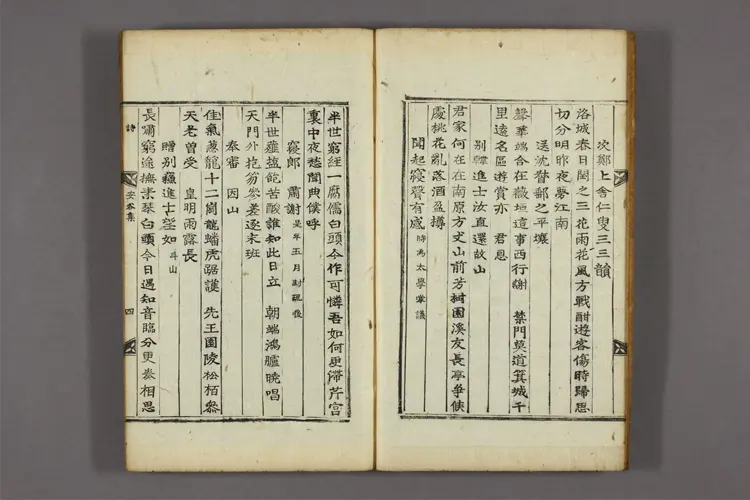 次鄭上舍仁叟三三韻
洛城春日閏之三花雨花風方戰酣遊客傷時歸思
切分明昨夜夢江南
送沈督郵之平壤
聲華端合在薇垣這事西行謝 禁門莫道箕城千
里遠名區遊賞亦 君恩
別韓進士汝直還故山
君家何在在南原方丈山前芳樹園溪友長亭爭俟
處桃花亂落酒盈樽
聞起寢聲有感 時爲太學掌議
半世窮經一腐儒白頭今作可憐吾如何更滯芹宮
裏中夜愁聞典僕呼
寢郞 肅謝 是年五月
半世虀鹽飽苦酸誰知此日立 朝端鴻臚曉唱
天門外抱笏參差逐末班
奉審 因山
佳氣蔥龍十二崗龍蟠虎踞護 先王園陵松栢參
天老曾受 皇明雨露長
贈別 進士 如 斗山
長嘯窮途撫素琴白頭今日遇知音臨分更 相思
詩
安 集
四